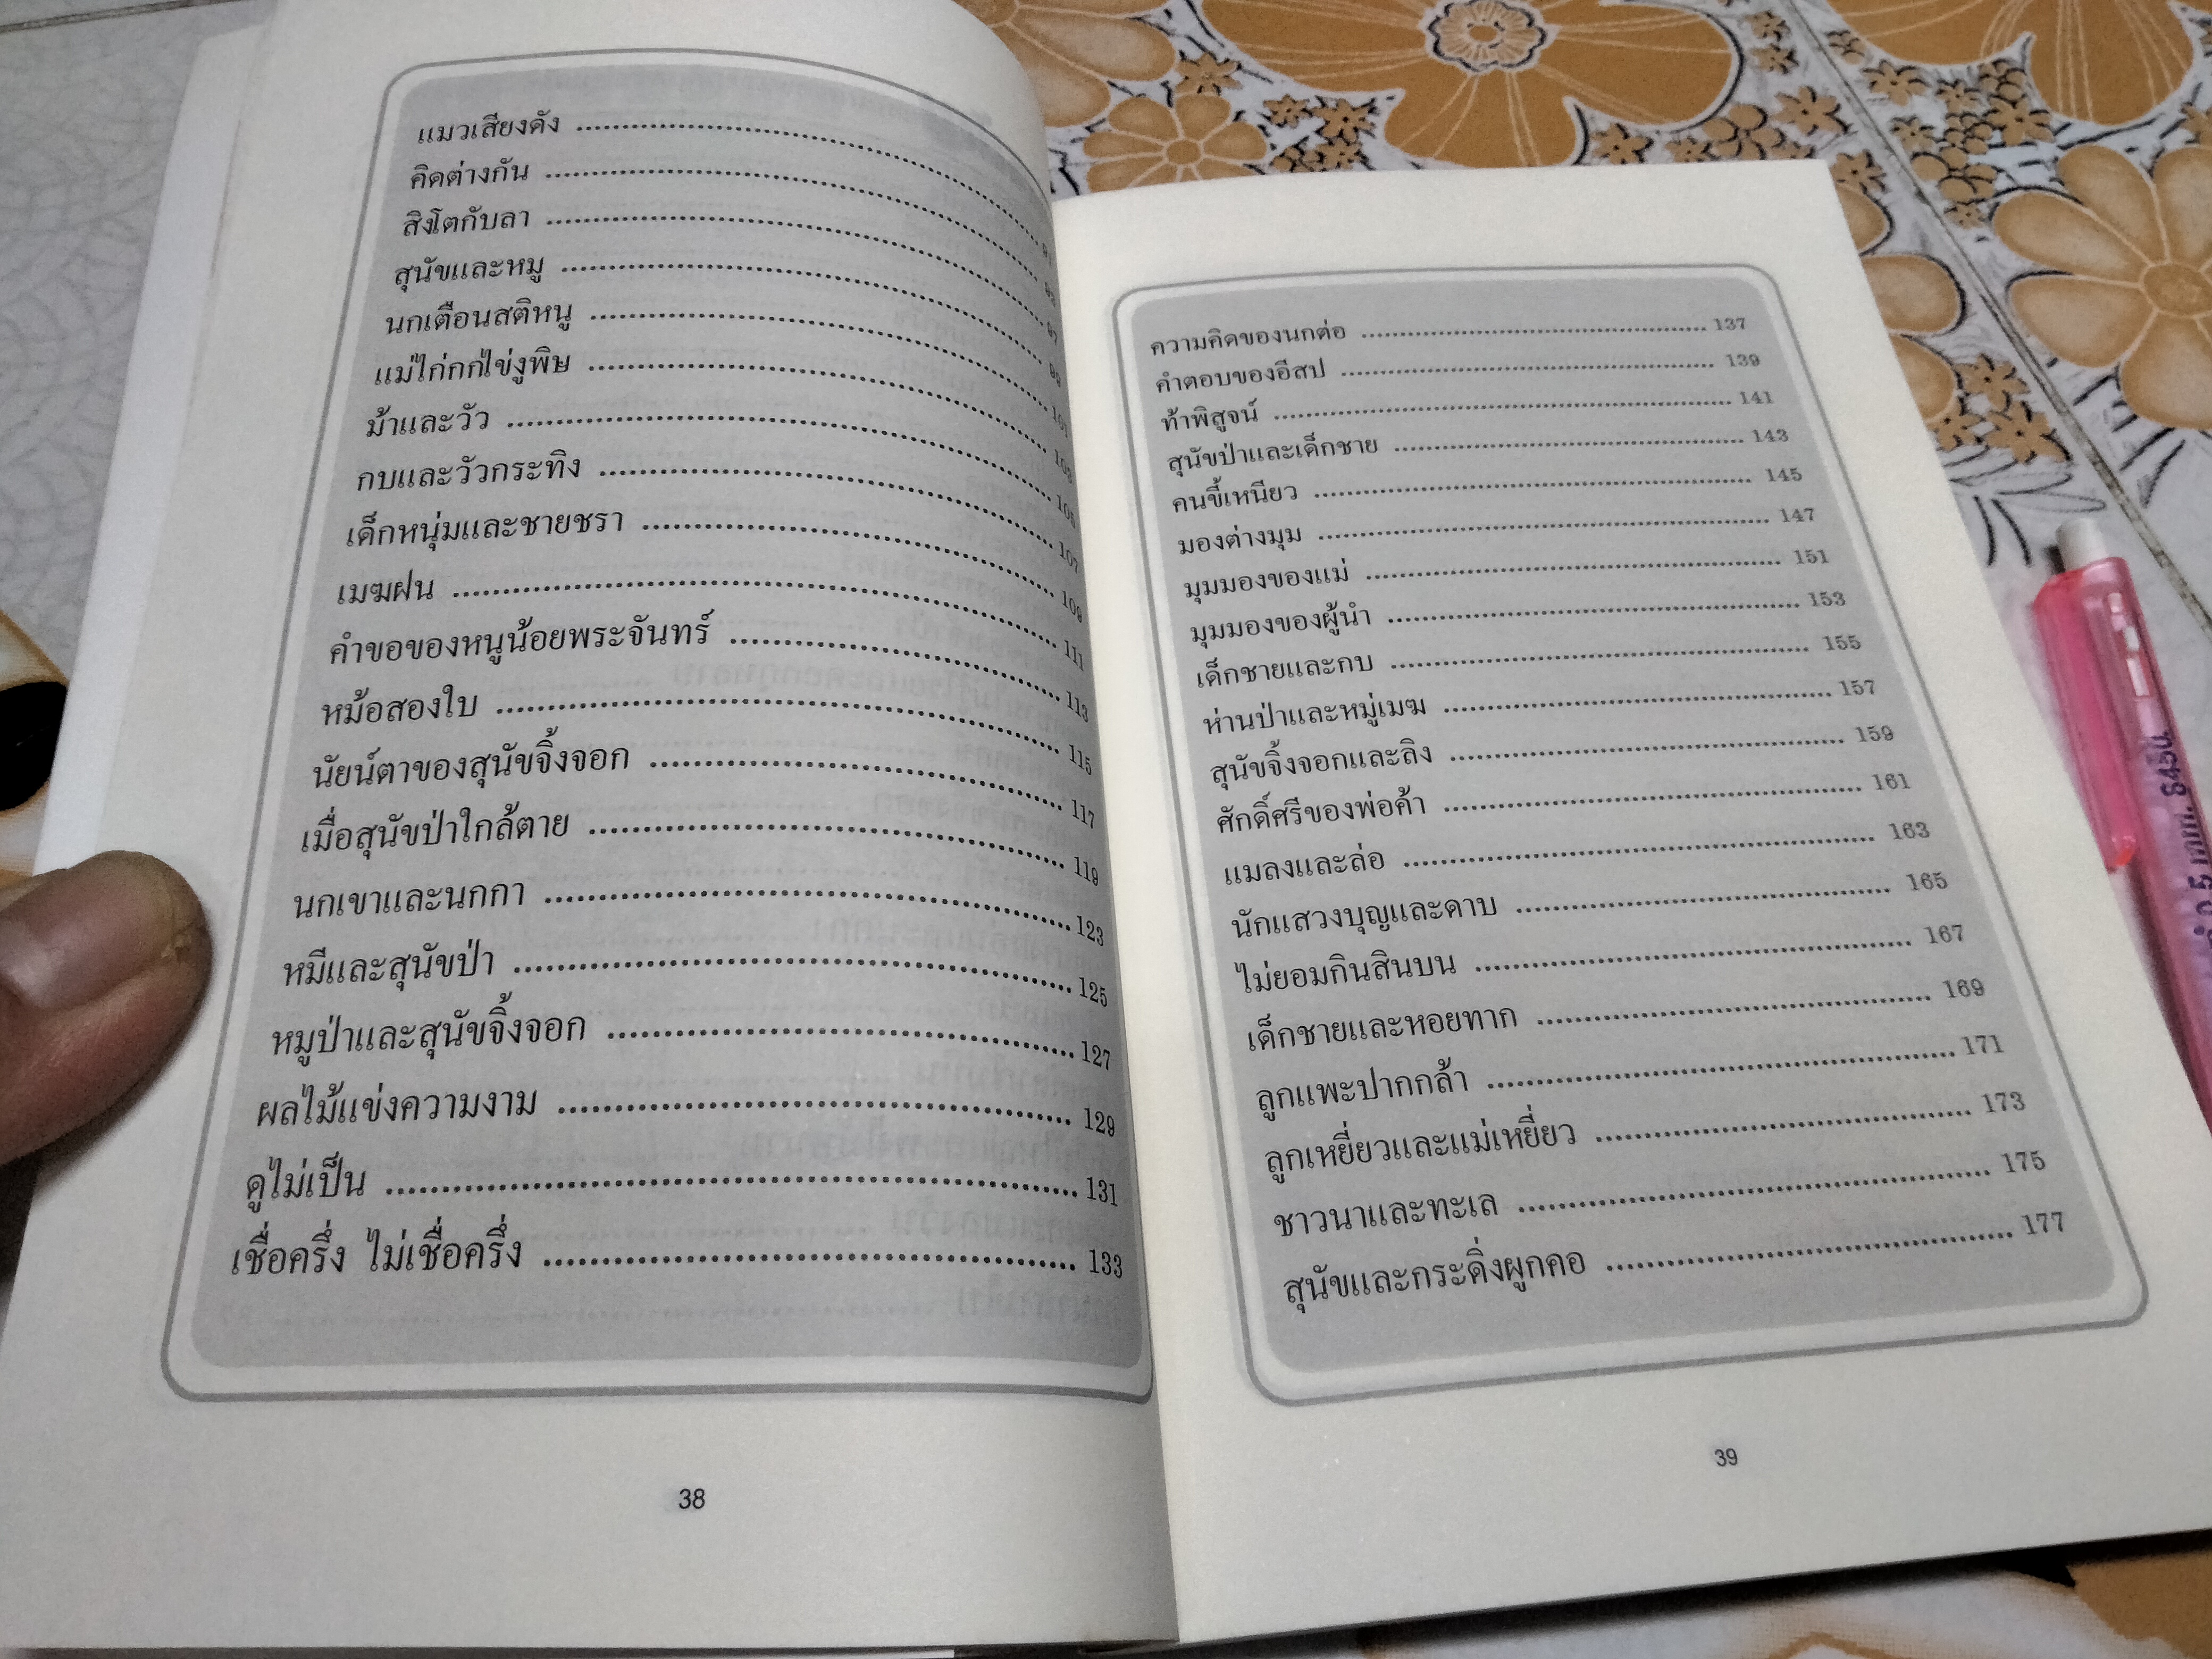 แมวเสียงดัง
คิดต่างกัน
สิงโตกับลา ........ 97
สุนัขและหมู ........ 99
นกเตือนสติหนู ........ 101
แม่ไก่กกไข่งูพิษ ........ 103
ม้าและวัว ........ 105
กบและวัวกระทิง ........ 107
เด็กหนุ่มและชายชรา ........ 109
เมฆฝน ........ 111
คำขอของหนูน้อยพระจันทร์ ........ 113
หม้อสองใบ ........ 115
นัยน์ตาของสุนัขจิ้งจอก ........ 117
เมื่อสุนัขป่าใกล้ตาย ........ 119
นกเขาและนกกา ........ 123
หมีและสุนัขป่า ........ 125
หมูป่าและสุนัขจิ้งจอก ........ 127
ผลไม้แข่งความงาม ........ 129
ดูไม่เป็น ........ 131
เชื่อครึ่ง ไม่เชื่อครึ่ง ........ 133
38
ความคิดของนกต่อ ........ 137
คำตอบของอีสป ........ 139
ท้าพิสูจน์ ........ 141
สุนัขป่าและเด็กชาย ........ 143
คนขี้เหนียว ........ 145
มองต่างมุม ........ 147
มุมมองของแม่ ........ 151
มุมมองของผู้นำ ........ 153
เด็กชายและกบ ........ 155
ห่านป่าและหมู่เมฆ ........ 157
สุนัขจิ้งจอกและลิง ........ 159
ศักดิ์ศรีของพ่อค้า ........ 161
แมลงและล่อ ........ 163
นักแสวงบุญและดาบ ........ 165
ไม่ยอมกินสินบน ........ 167
เด็กชายและหอยทาก ........ 169
ลูกแพะปากกล้า ........ 171
ลูกเหยี่ยวและแม่เหยี่ยว ........ 173
ชาวนาและทะเล ........ 175
สุนัขและกระดิ่งผูกคอ ........ 177
39
0.5 มม.